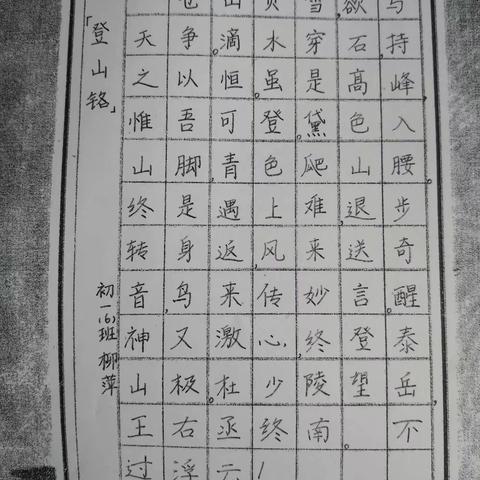 山负雪,欲与
天争。滴水穿石,持
之以恒。虽是高峰,
惟吾可登。黛色入
山脚,青色爬山腰。
终是遇上难,退步
转身返,风来送奇
音,鸟来传妙言。醒
神又激心,终登泰
山极。杜少陵望岳,
王右丞终南。不
过浮云!
「登山铭」
初一(6)班 柳萍